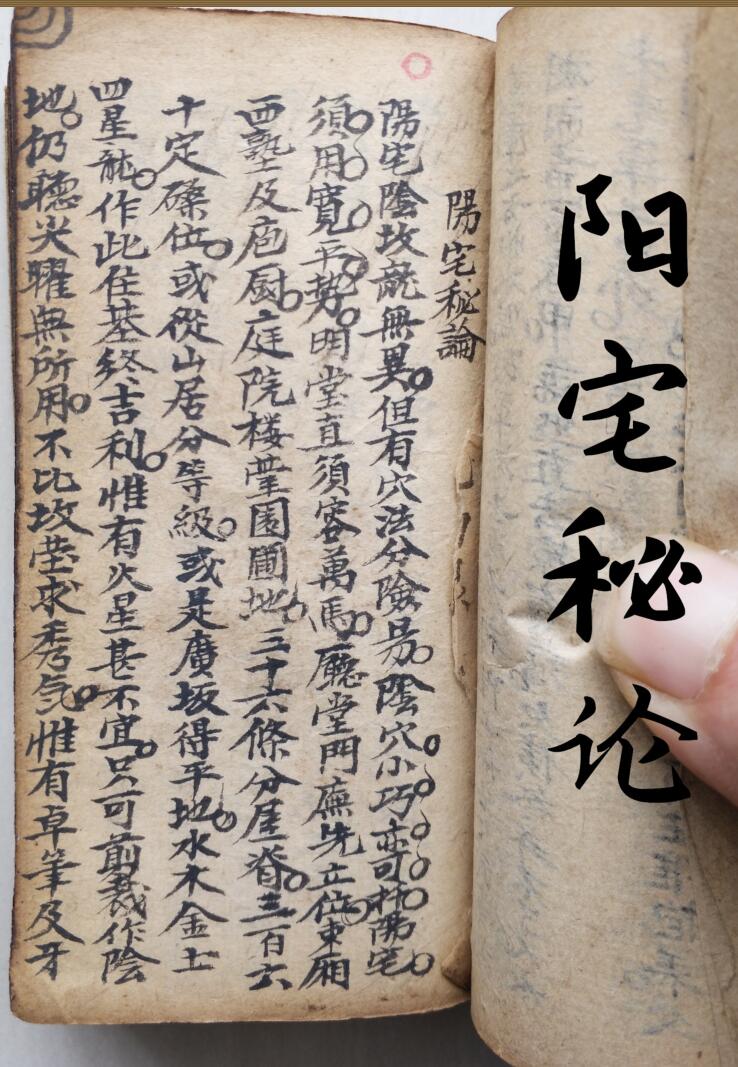 阳宅秘论
陽宅秘論
陽宅陰坟龍無異。但有穴法分險易。陰穴小巧亦可扦陽宅
須用寬平勢。明堂直須容萬馬。廳堂門廡先立位。東廂
西塾及庖厨。庭院楼臺園圃地。三十六條分屋脊。三百六
十定磉位。或從山居分等級。或是廣坂得平地。水木金土
四星龍。作此住基終吉利。惟有火星甚不宜。只可剪裁作陰
地。仍聽尖曜無所用。不比坟塋求秀气。惟有卓筆及牙